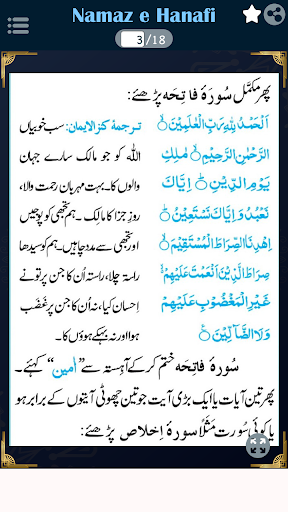 Namaz e Hanafi
3/18
پھر مکمَّل سُورَۂ فَاتِحَہ پڑھئے:
اَلْحَمْدُ لِلّٰهِ رَبِّ الْعٰلَمِیْنَۙ
الرَّحْمٰنِ الرَّحِیْمِۙ مٰلِكِ
یَوْمِ الدِّیْنِؕ اِیَّاكَ
نَعْبُدُ وَ اِیَّاكَ نَسْتَعِیْنُؕ
اِهْدِنَا الصِّرَاطَ الْمُسْتَقِیْمَۙ
صِرَاطَ الَّذِیْنَ اَنْعَمْتَ عَلَیْهِمْ
غَیْرِ الْمَغْضُوْبِ عَلَیْهِمْ
وَ لَا الضَّآلِّیْنَ۠
ترجمۂ کنزالایمان: سب خوبیاں
اللہ کو جو مالک سارے جہان
والوں کا۔ بہت مہربان رحمت والا،
روزِ جزا کا مالک۔ ہم تجھی کو پوجیں
اور تجھی سے مدد چاہیں۔ ہم کو سیدھا
راستہ چلا، راستہ اُن کا جن پر تو نے
اِحسان کیا، نہ اُن کا جن پر غَضَب
ہوا اور نہ بہکے ہوؤں کا۔
سُورَۂ فَاتِحَہ ختم کر کے آہستہ سے “اٰمین” کہئے۔
پھر تین آیات یا ایک بڑی آیت جو تین چھوٹی آیتوں کے برابر ہو
یا کوئی سُورت مَثَلًا سورۂ اِخلاص پڑھئے: